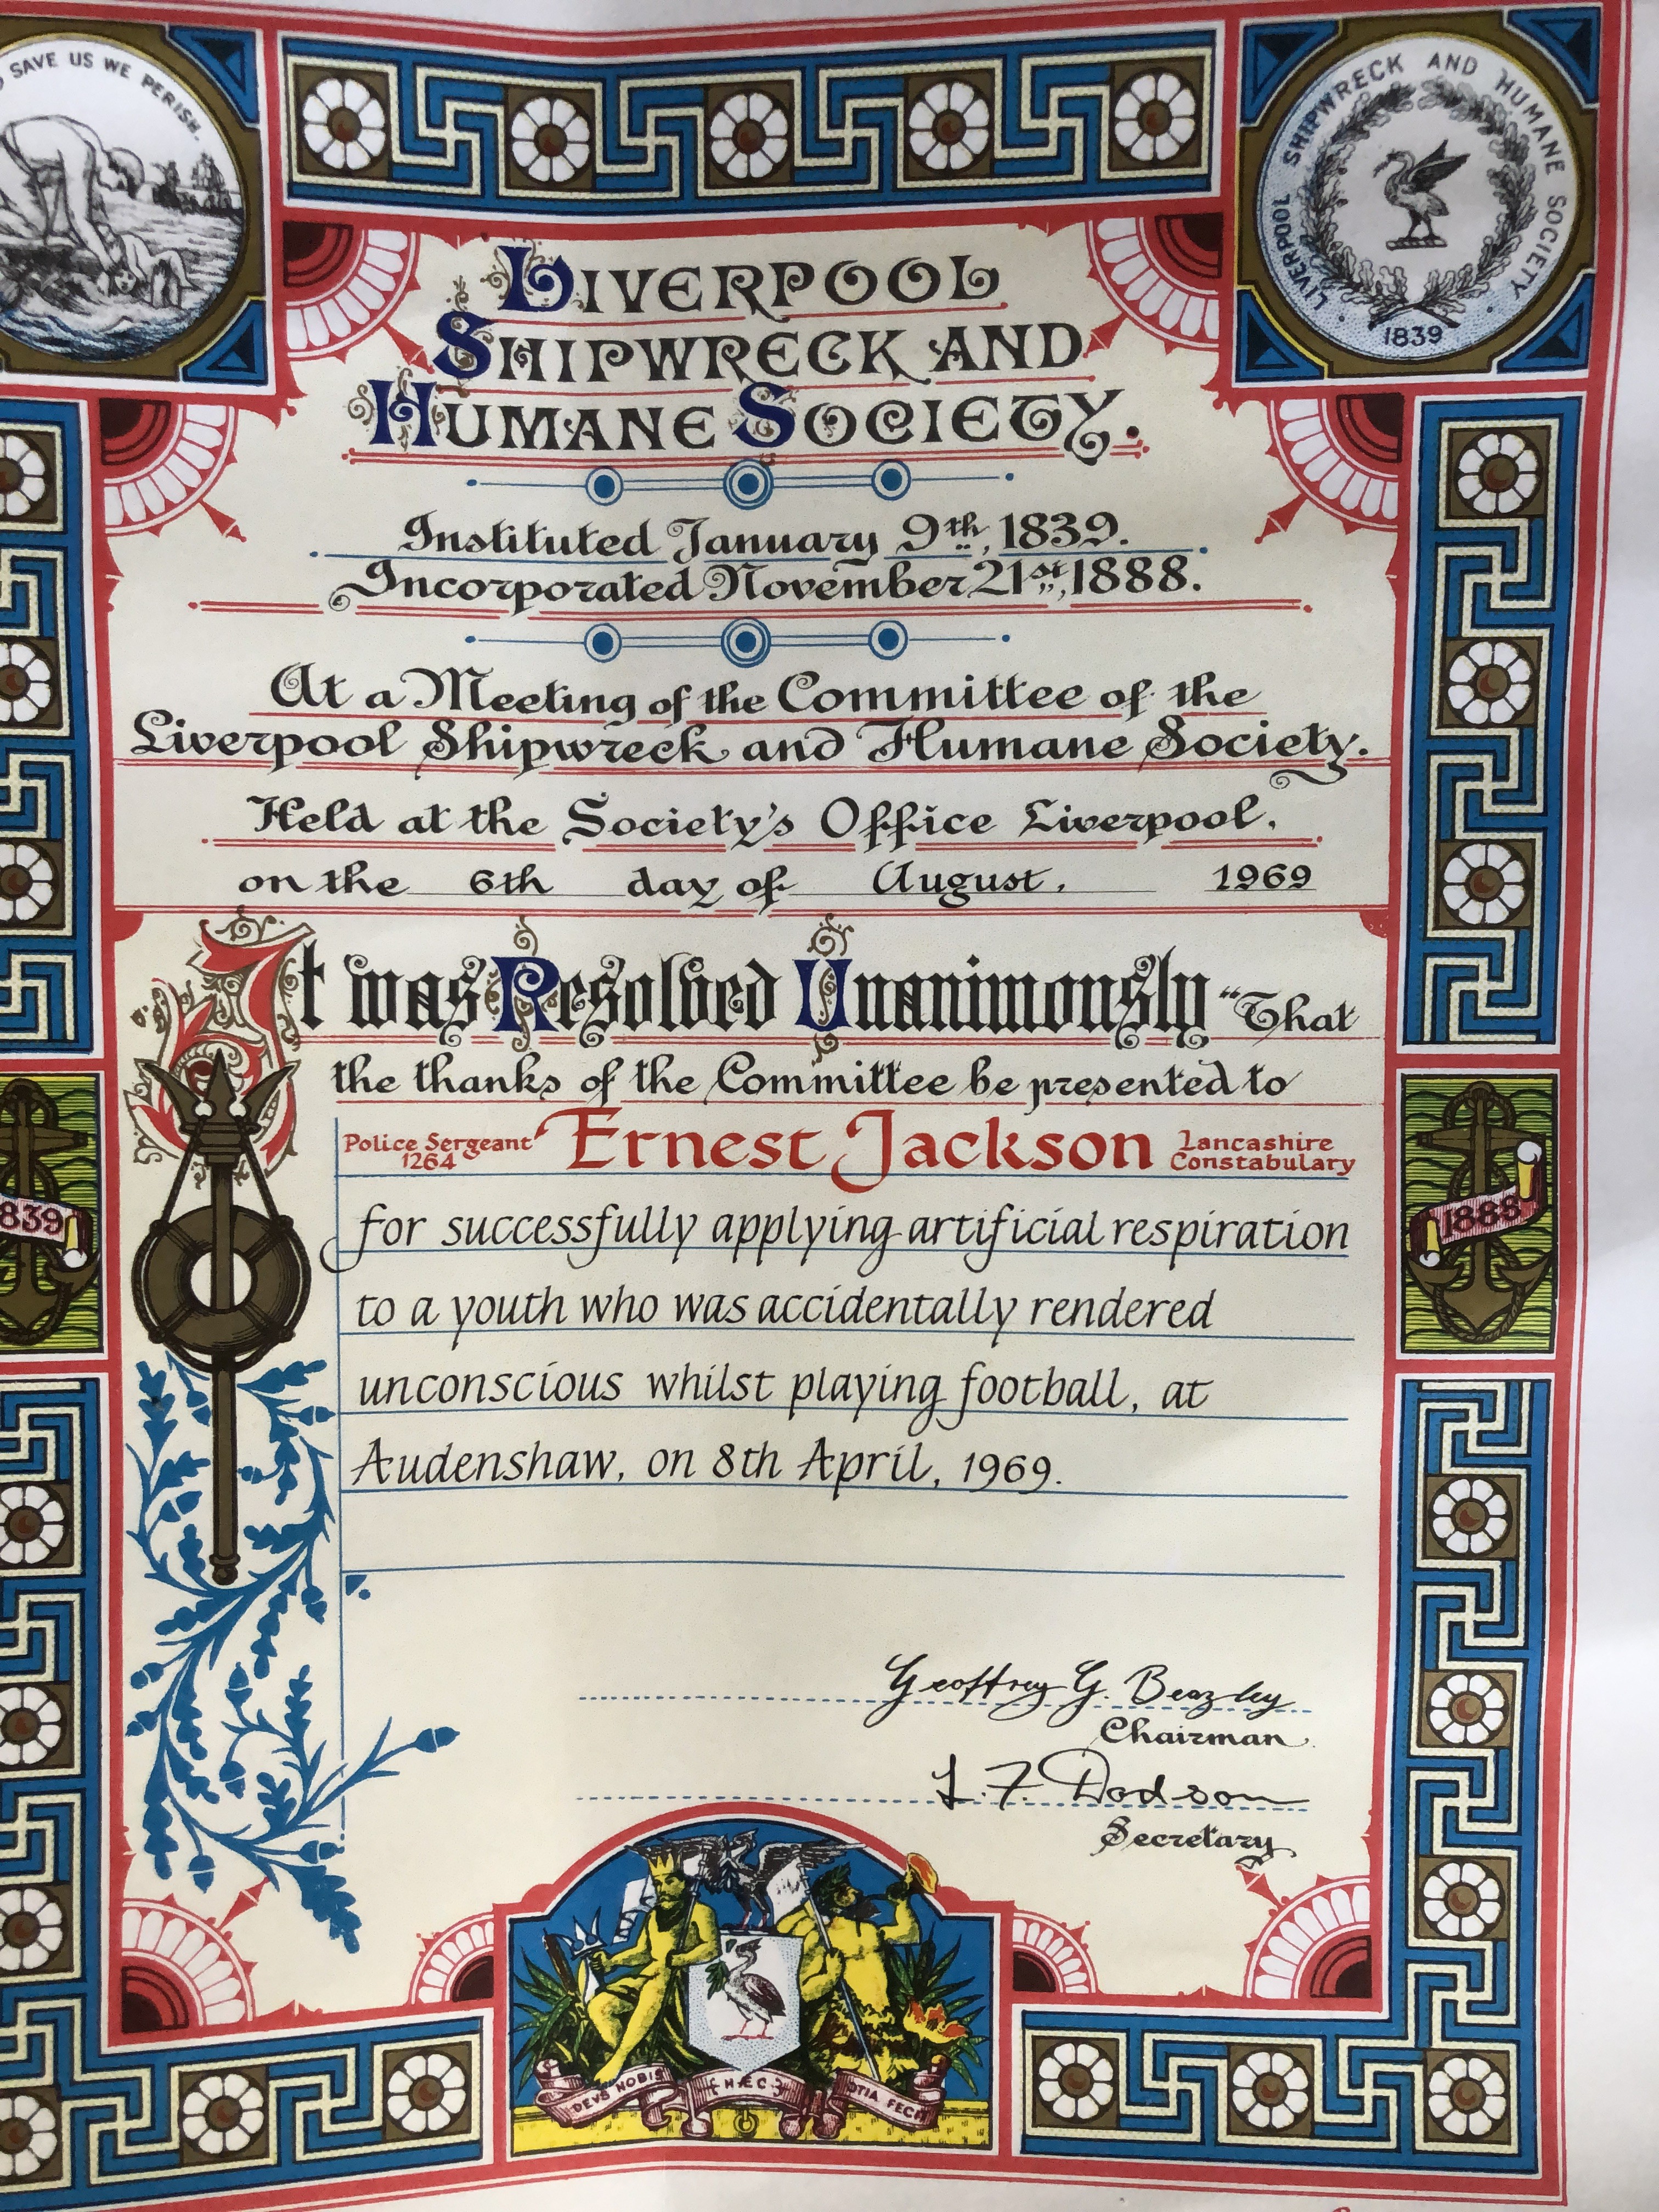 SAVE US WE PERISH.
LIVERPOOL SHIPWRECK AND HUMANE SOCIETY
1839
LIVERPOOL
SHIPWRECK AND
HUMANE SOCIETY.
Instituted January 9th, 1839.
Incorporated November 21st, 1888.
At a Meeting of the Committee of the
Liverpool Shipwreck and Humane Society.
Held at the Society's Office Liverpool,
on the 6th day of August, 1969
It was Resolved Unanimously "That
the thanks of the Committee be presented to
Police Sergeant 1264 Ernest Jackson Lancashire Constabulary
for successfully applying artificial respiration
to a youth who was accidentally rendered
unconscious whilst playing football, at
Audenshaw, on 8th April, 1969.
839
1888
Geoffrey G. Beazley
Chairman
L. F. Dodson
Secretary
DEVS NOBIS HÆC OTIA FECIT